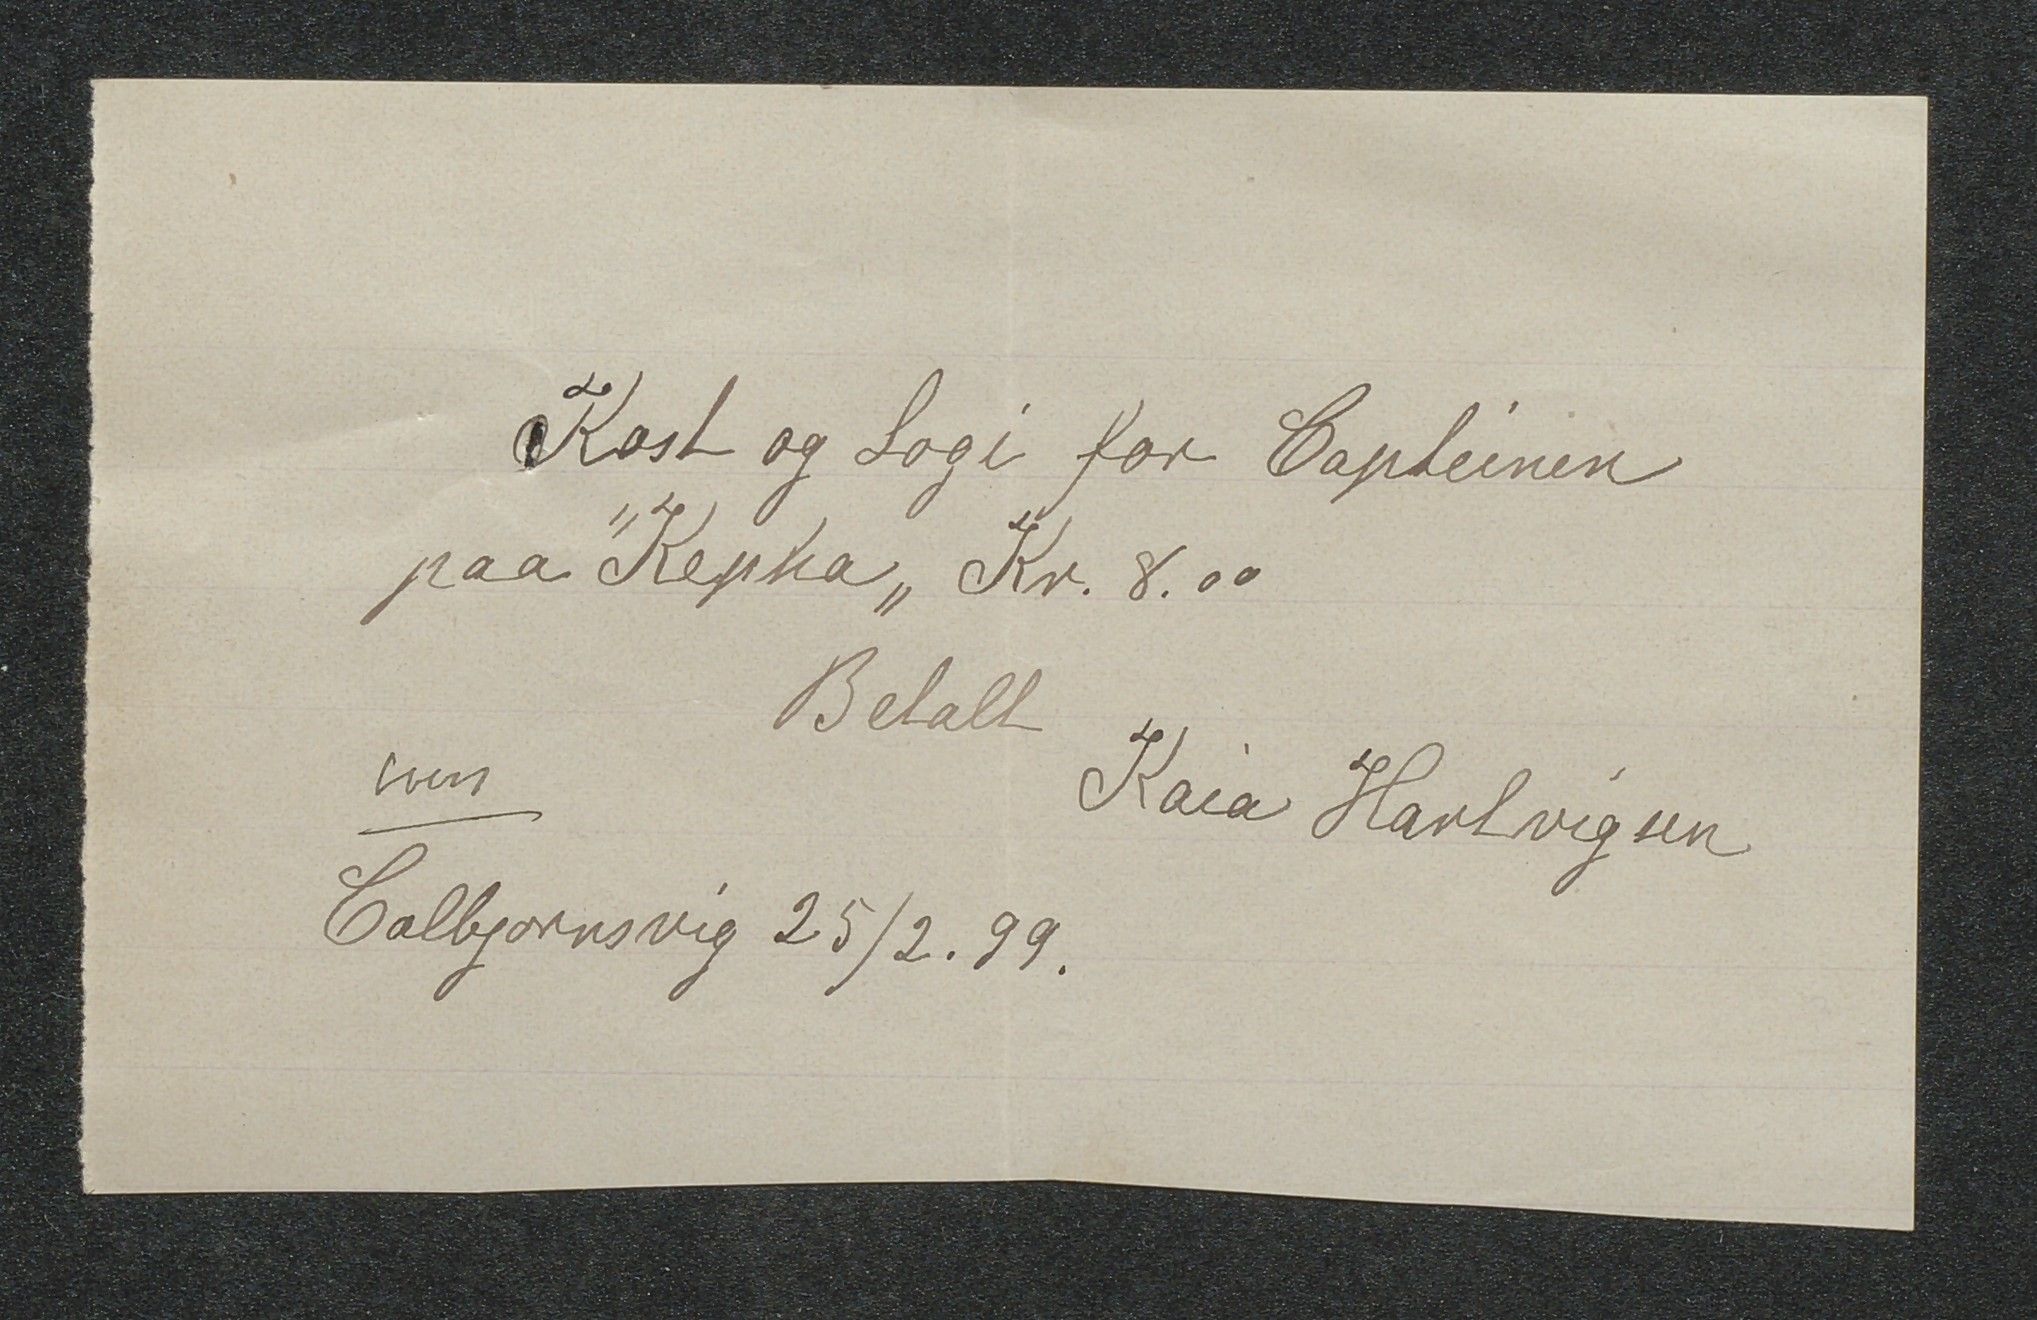 Kost og Logi for Capteinen
paa "Kepha„ Kr. 8.00
Betalt
Kaia Hartvigsen
Colbjørnsvig 25/2. 99.